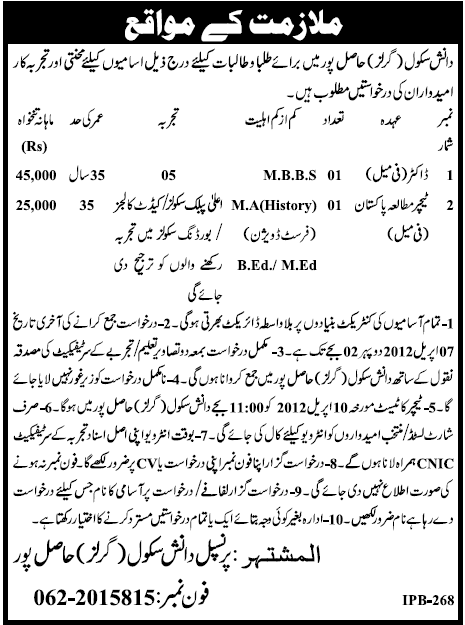 ملازمت کے مواقع
دانش سکول (گرلز) حاصل پور میں برائے طلبا و طالبات کیلئے درج ذیل اسامیوں کیلئے محنتی اور تجربہ کار
امیدواران کی درخواستیں مطلوب ہیں۔
نمبر شمار عہدہ تعداد کم از کم اہلیت تجربہ عمر کی حد ماہانہ تنخواہ (Rs)
1 ڈاکٹر (فی میل) 01 M.B.B.S 05 35 سال 45,000
2 ٹیچر مطالعہ پاکستان 01 M.A(History) اعلیٰ پبلک سکولز/ کیڈٹ کالجز 35 25,000
(فی میل) (فرسٹ ڈویژن) / بورڈنگ سکولز میں تجربہ
B.Ed./ M.Ed رکھنے والوں کو ترجیح دی
جائے گی
1- تمام آسامیوں کی کنٹریکٹ بنیادوں پر بلا واسطہ ڈائریکٹ بھرتی ہوگی۔ 2- درخواست جمع کرانے کی آخری تاریخ
07 اپریل 2012 دوپہر 02 بجے تک ہے۔ 3- مکمل درخواست بمعہ دو تصاویر تعلیم/ تجربے کے سرٹیفکیٹ کی مصدقہ
نقول کے ساتھ دانش سکول (گرلز) حاصل پور میں جمع کروانا ہوں گی۔ 4- نامکمل درخواست کو زیر غور نہیں لایا جائے
گا۔ 5- ٹیچر کا ٹیسٹ مورخہ 10 اپریل 2012 کو 11:00 بجے دانش سکول (گرلز) حاصل پور میں ہوگا۔ 6- صرف
شارٹ لسٹڈ/ منتخب امیدواروں کو انٹرویو کیلئے کال کی جائے گی۔ 7- بوقت انٹرویو اپنی اصل اسناد تجربہ کے سرٹیفکیٹ
CNIC ہمراہ لانا ہوں گے۔ 8- درخواست گزار اپنا فون نمبر اپنی درخواست یا CV پر ضرور لکھے گا۔ فون نمبر نہ ہونے
کی صورت اطلاع نہیں دی جائے گی۔ 9- درخواست گزار لفافے/ درخواست پر آسامی کا نام جس کیلئے درخواست
دے رہا ہے نام ضرور لکھیں۔ 10- ادارہ بغیر کوئی وجہ بتائے ایک یا تمام درخواستیں مسترد کرنے کا اختیار رکھتا ہے۔
المشتہر: پرنسپل دانش سکول (گرلز) حاصل پور
فون نمبر: 062-2015815
IPB-268